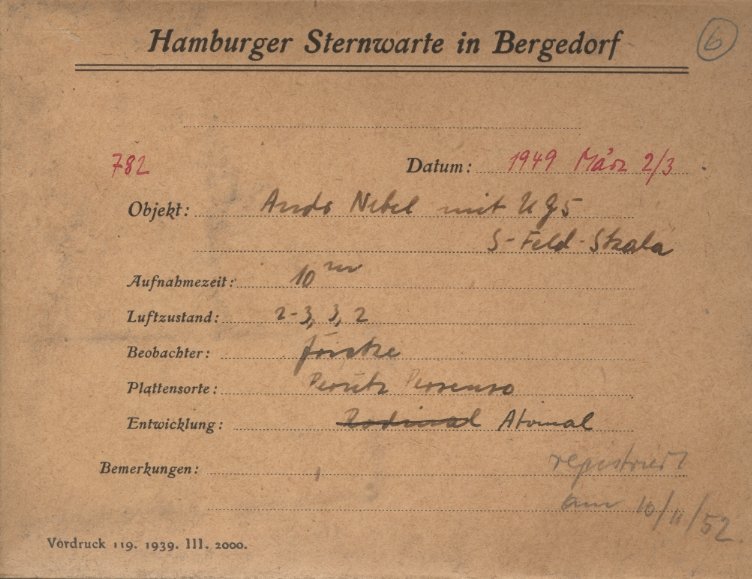 Hamburger Sternwarte in Bergedorf
6
782 Datum: 1949 März 2/3
Objekt: Nebel mit UG5
S-Feld-Skala
Aufnahmezeit: 10 m
Luftzustand: 2-3, 3, 2
Beobachter:
Plattensorte: Perutz Persenso
Entwicklung: Rodinal Atomal
Bemerkungen: registriert
am 10/11/52.
Vordruck 119. 1939. III. 2000.